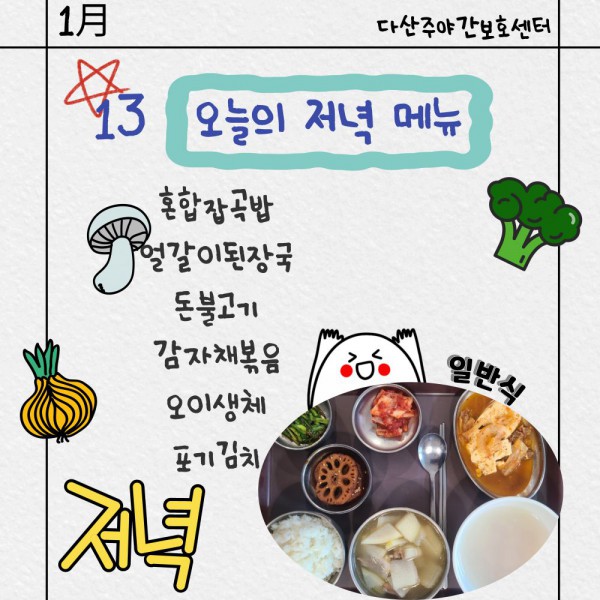 1月
다산주야간보호센터
13 오늘의 저녁 메뉴
혼합잡곡밥
얼갈이된장국
돈불고기
감자채볶음
오이생체
포기김치
일반식
저녁